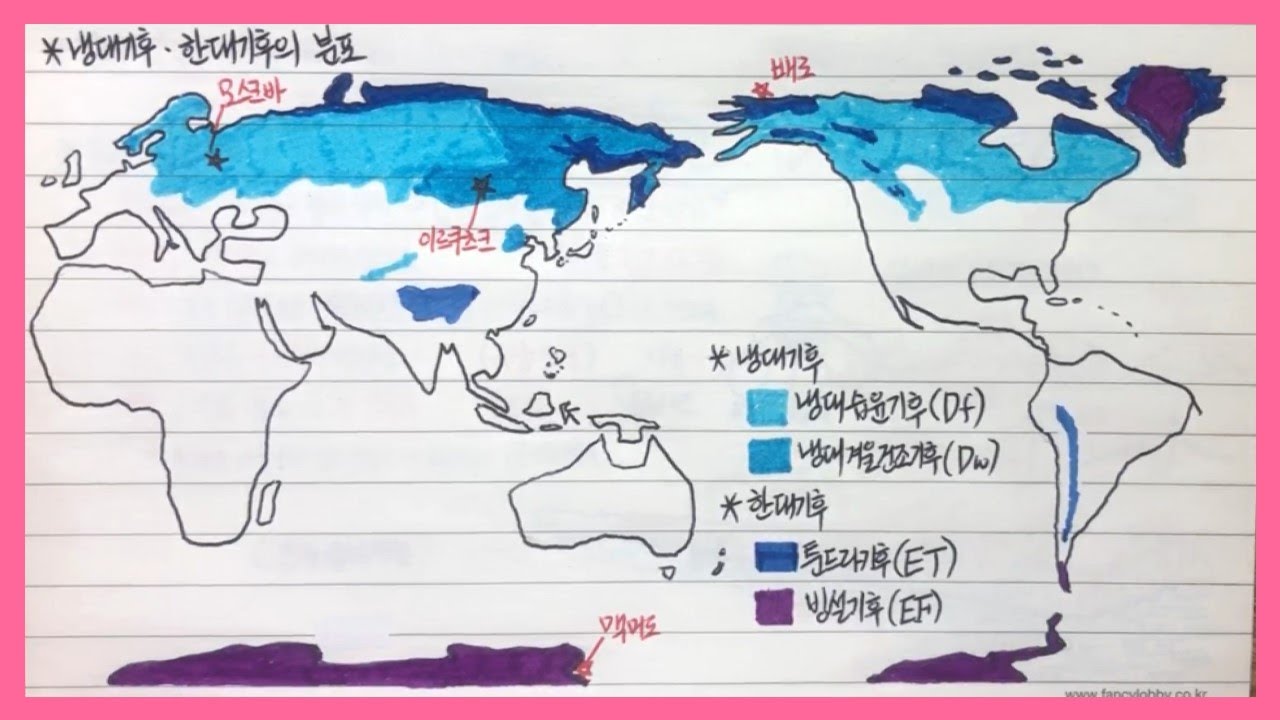 * 냉대기후·한대기후의 분포
모스크바
배로
이르쿠츠크
* 냉대기후
냉대습윤기후(Df)
냉대겨울건조기후(Dw)
* 한대기후
툰드라기후(ET)
빙설기후(EF)
맥머도
www.fancylobby.co.kr